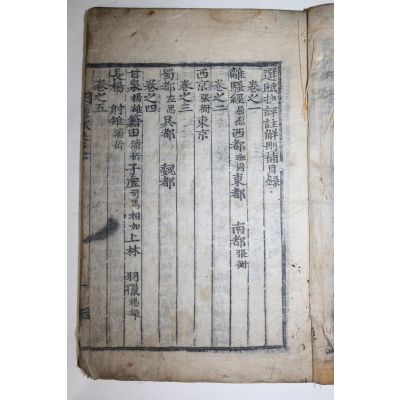 選賦抄評註解刪補目録
卷之一
離騷經 屈原 西都 班固 東都 南都 張衡
卷之二
西京 張衡 東京
卷之三
蜀都 左思 吳都 魏都
卷之四
甘泉 楊雄 籍田 潘岳 子虛 司馬相如 上林 羽獵 楊雄
長楊 射雉 潘岳
卷之五